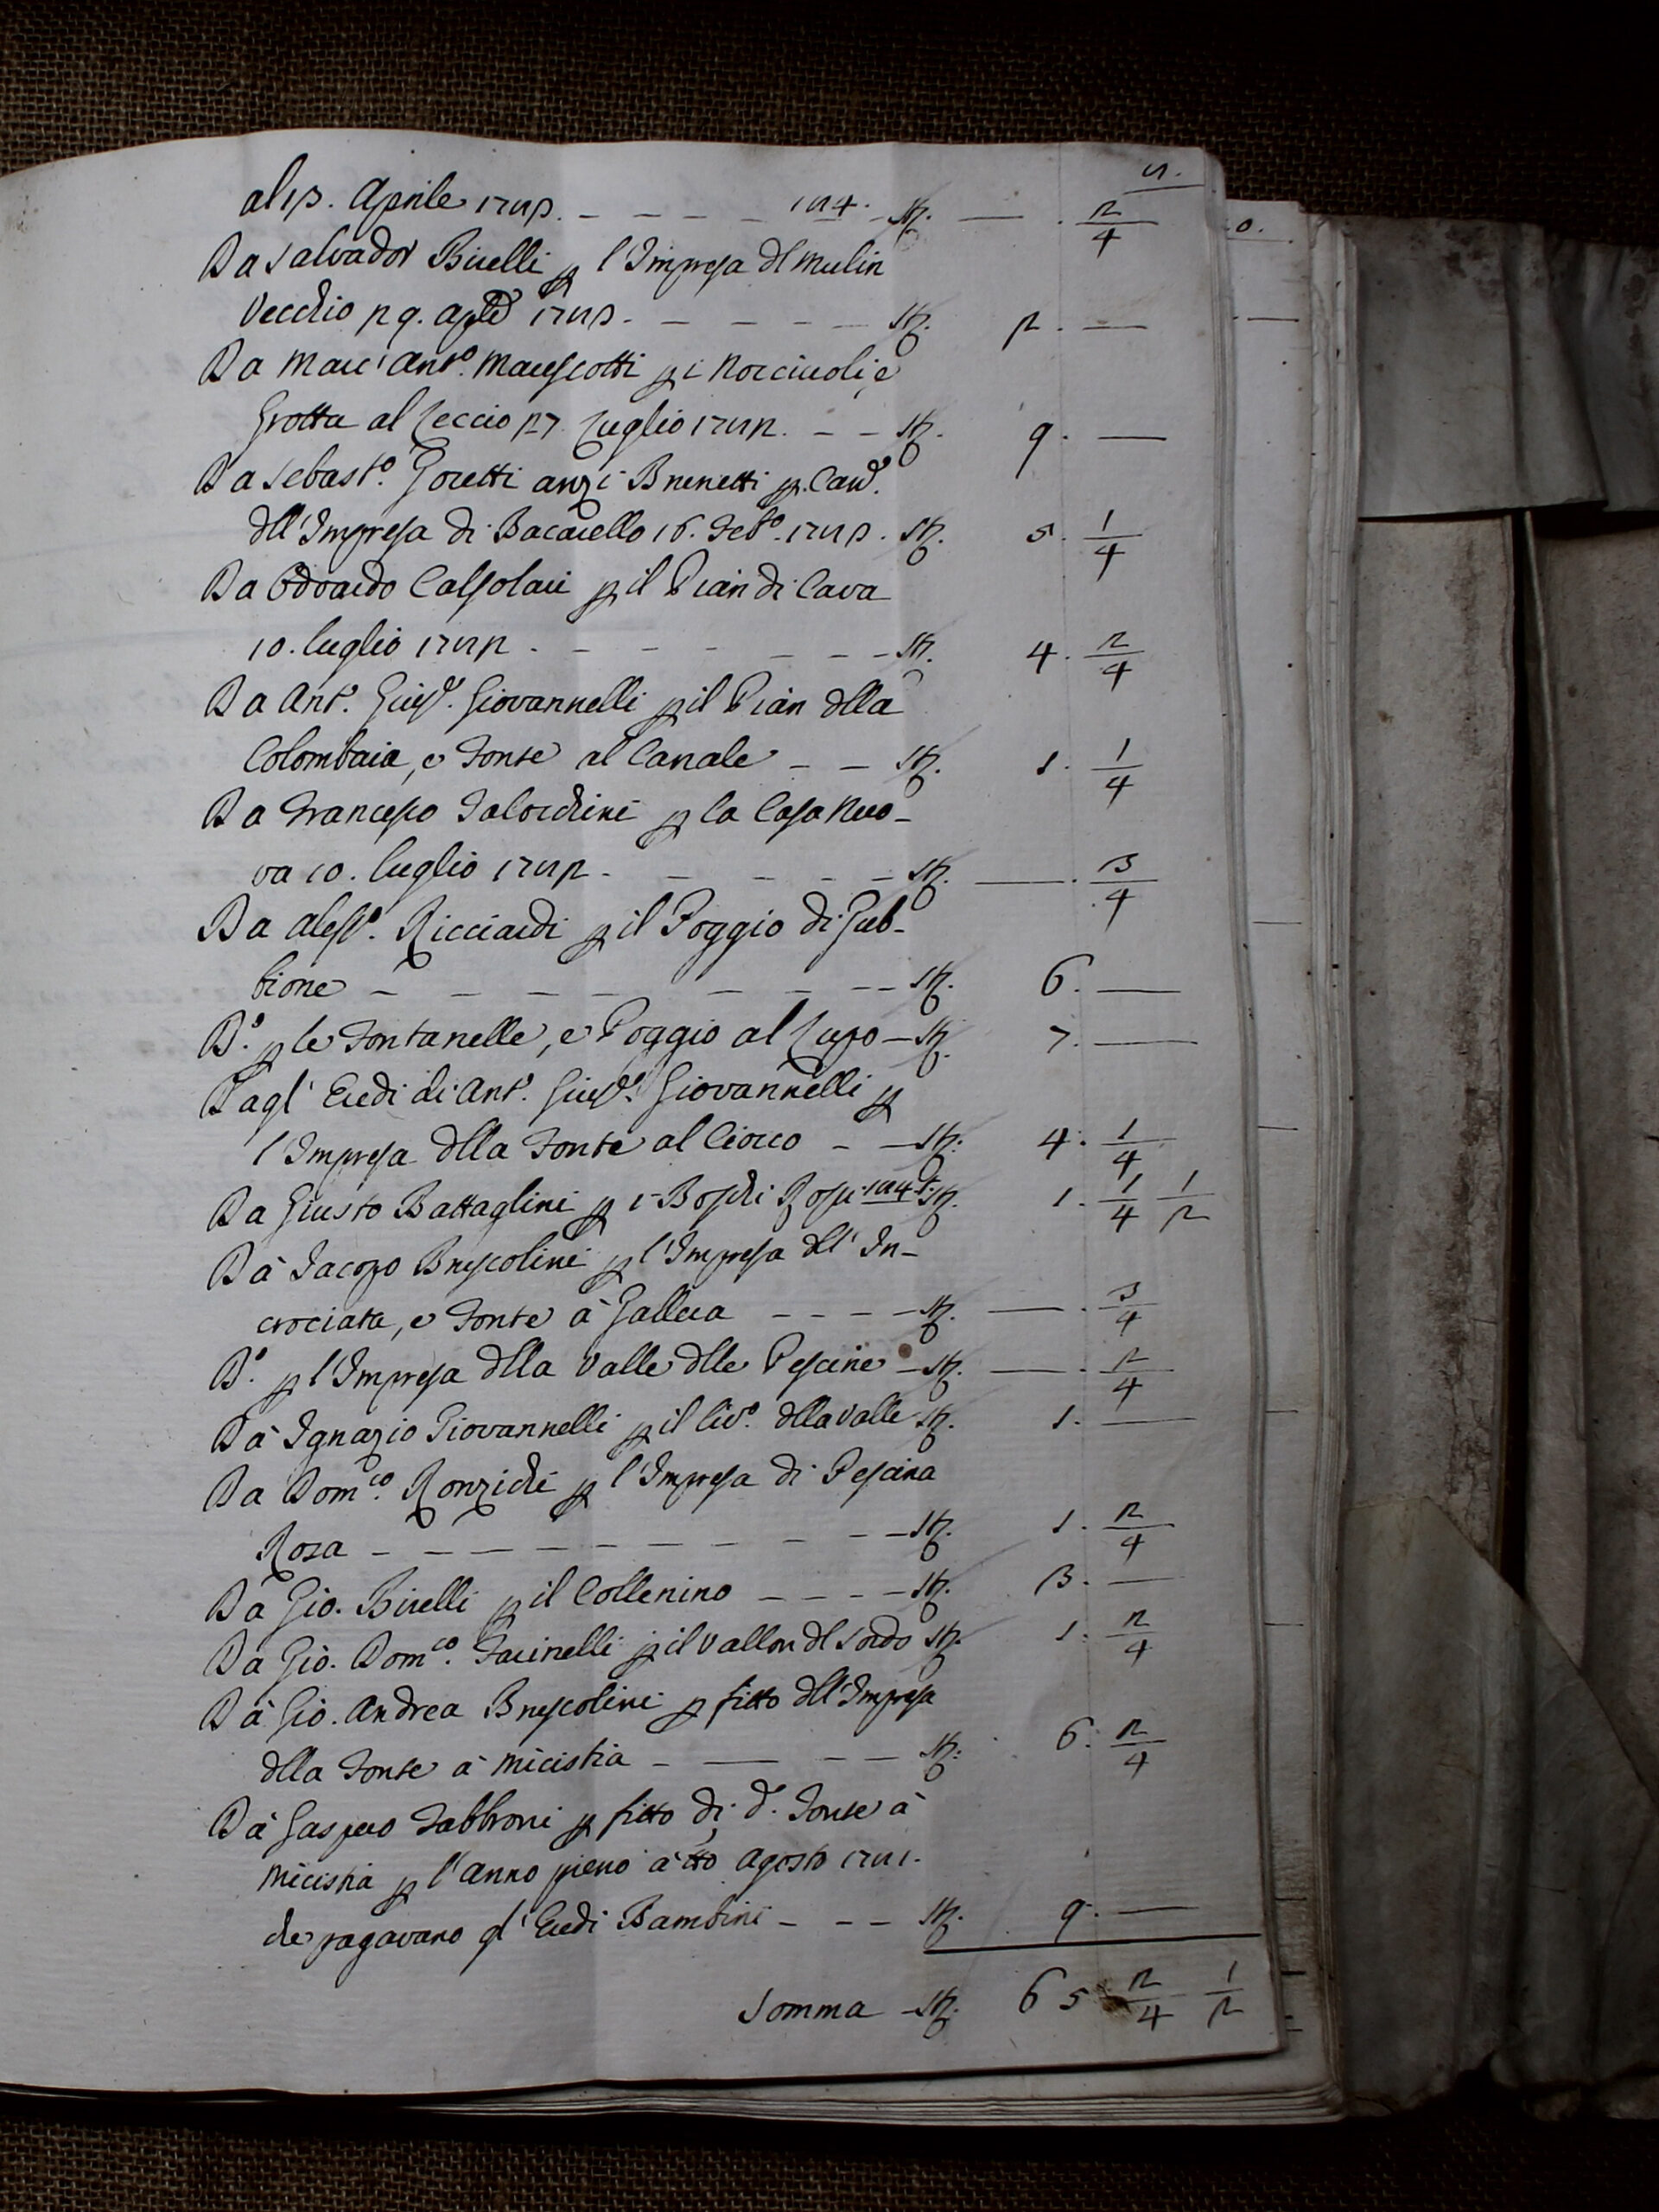 8.
al 13. Aprile 1783. – – – – 184. – St. — . 2/4
Da Salvador Birelli p l'Impresa dl Mulin
Vecchio 29. aple 1783. – – – – St. 2. —
Da Marc'Ant.o Marescotti p i Norcivoli, e
Grotta al Leccio 27. Luglio 1782. – – St. 9. —
Da Sebast.o Goretti anzi Brunetti p. Cand.
dll'Impresa di Bacarello 16. Feb.o 1783. St. 5. 1/4
Da Odoardo Calsolari p il Pian di Cava
10. luglio 1782. – – – – – – St. 4. 2/4
Da Ant.o Gius.e Giovannelli p il Pian dlla
Colombaia, e Fonte al Canale – – St. 1. 1/4
Da Francesco Talorchini p la Casa Nuo-
va 10. luglio 1782. – – – – St. — . 3/4
Da Aless.o Ricciardi p il Poggio di Gub-
bione – – – – – – – St. 6. —
D.o p le Fontanelle, e Poggio al Lupo – St. 7. —
Dagl' Eredi di Ant.o Gius.e Giovannelli p
l'Impresa dlla Fonte al Ciocco – – St. 4. 1/4
Da Giusto Battaglini p i Boschi Rossi 184 t. St. 1. 1/4 1/2
Da Jacopo Bruscolini p l'Impresa dll' In-
crociata, e Fonte à Gallera – – – – St. — . 3/4
D.o p l'Impresa dlla Valle dlle Pescine – St. — . 2/4
Da Ignazio Giovannelli p il liv.o dlla Valle St. 1. —
Da Dom.co Ronzichi p l'Impresa di Pescina
Rosa – – – – – – – – – St. 1. 2/4
Da Gio. Birelli p il Collenino – – – – St. 3. —
Da Gio. Dom.co Farinelli p il Vallon dl Sordo St. 1. 2/4
Da Gio. Andrea Bruscolini p fitto dll'Impresa
dlla Fonte à Micistia – — – – St. 6. 2/4
Da Gaspero Fabbroni p fitto di d.a Fonte à
Micistia p l'anno pieno à tto Agosto 1781.
che pagavano gl'Eredi Bambini – – – St. 9. —
Somma – St. 65 2/4 1/2